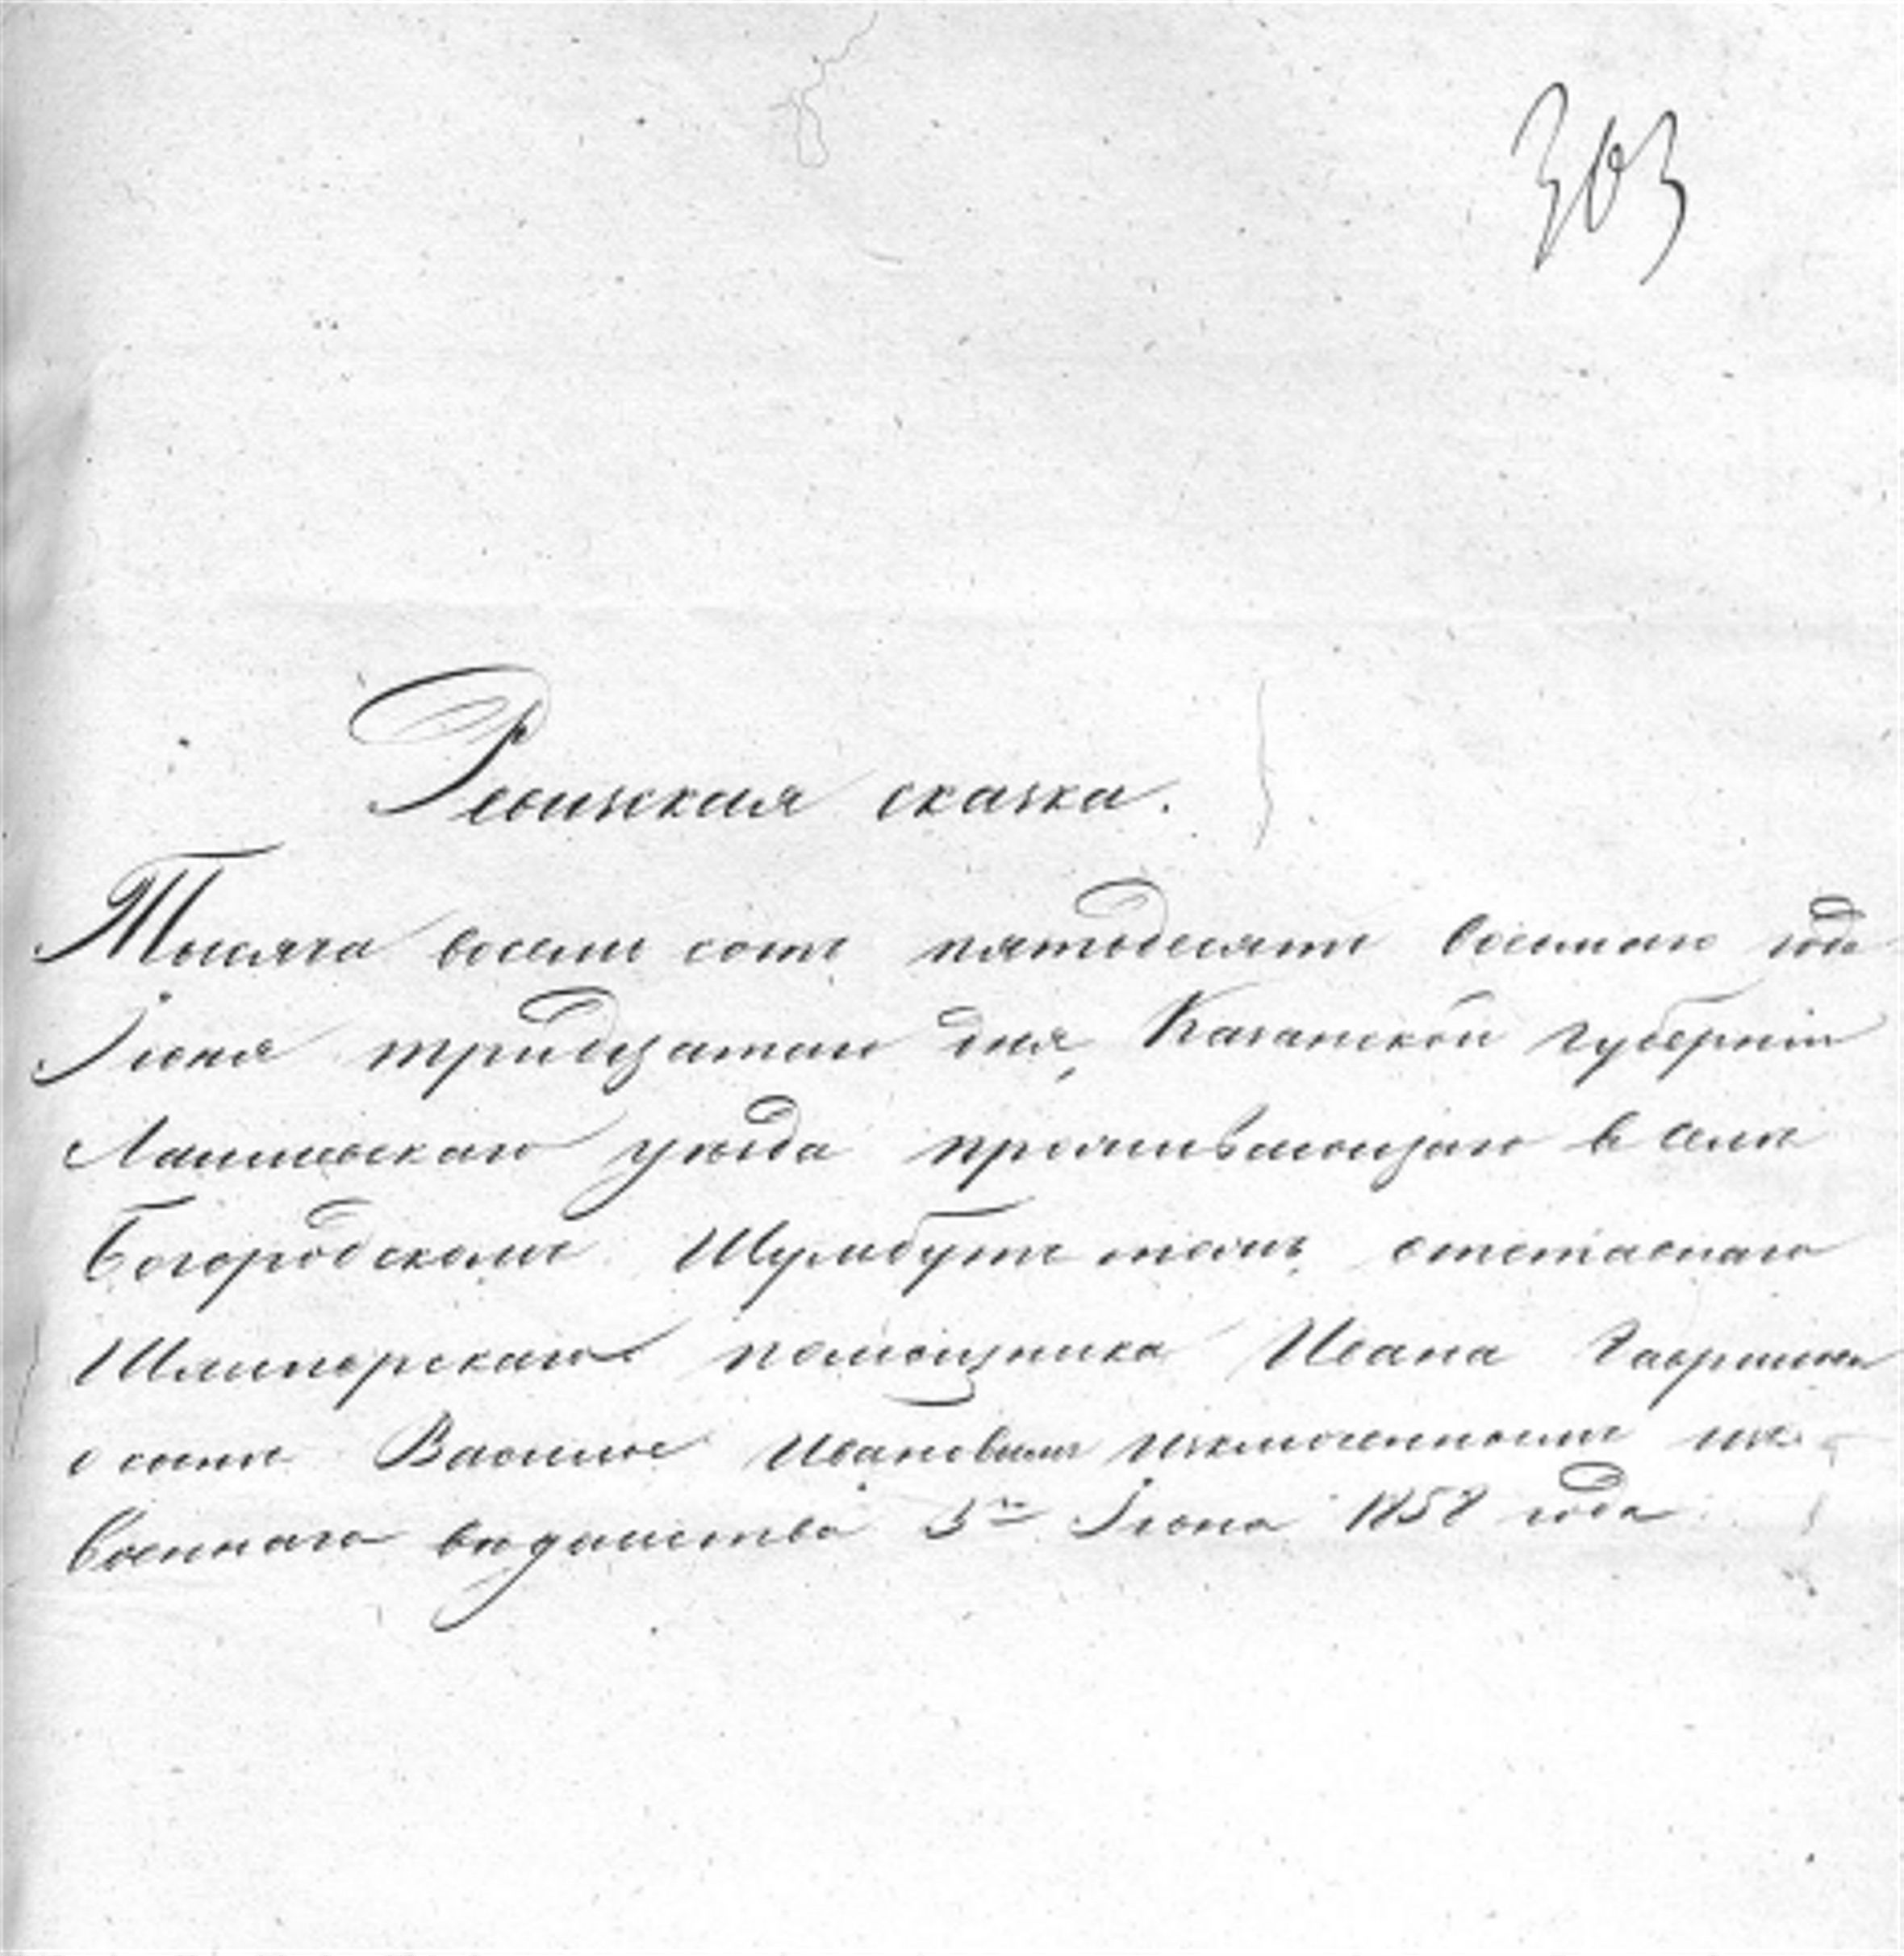 303
Ревизская сказка.
Тысяча восемь сотъ пятьдесятъ восьмаго года
Іюня тридцатаго дня, Казанской губерніи
Лаишевскаго уѣзда проживающаго в селѣ
Богородскомъ Шумбутъ тожъ, отставнаго
помощника Ивана Гаврилова
сынѣ Василье Ивановѣ исключенномъ изъ
Военнаго вѣдомства 5го Іюня 1858 года